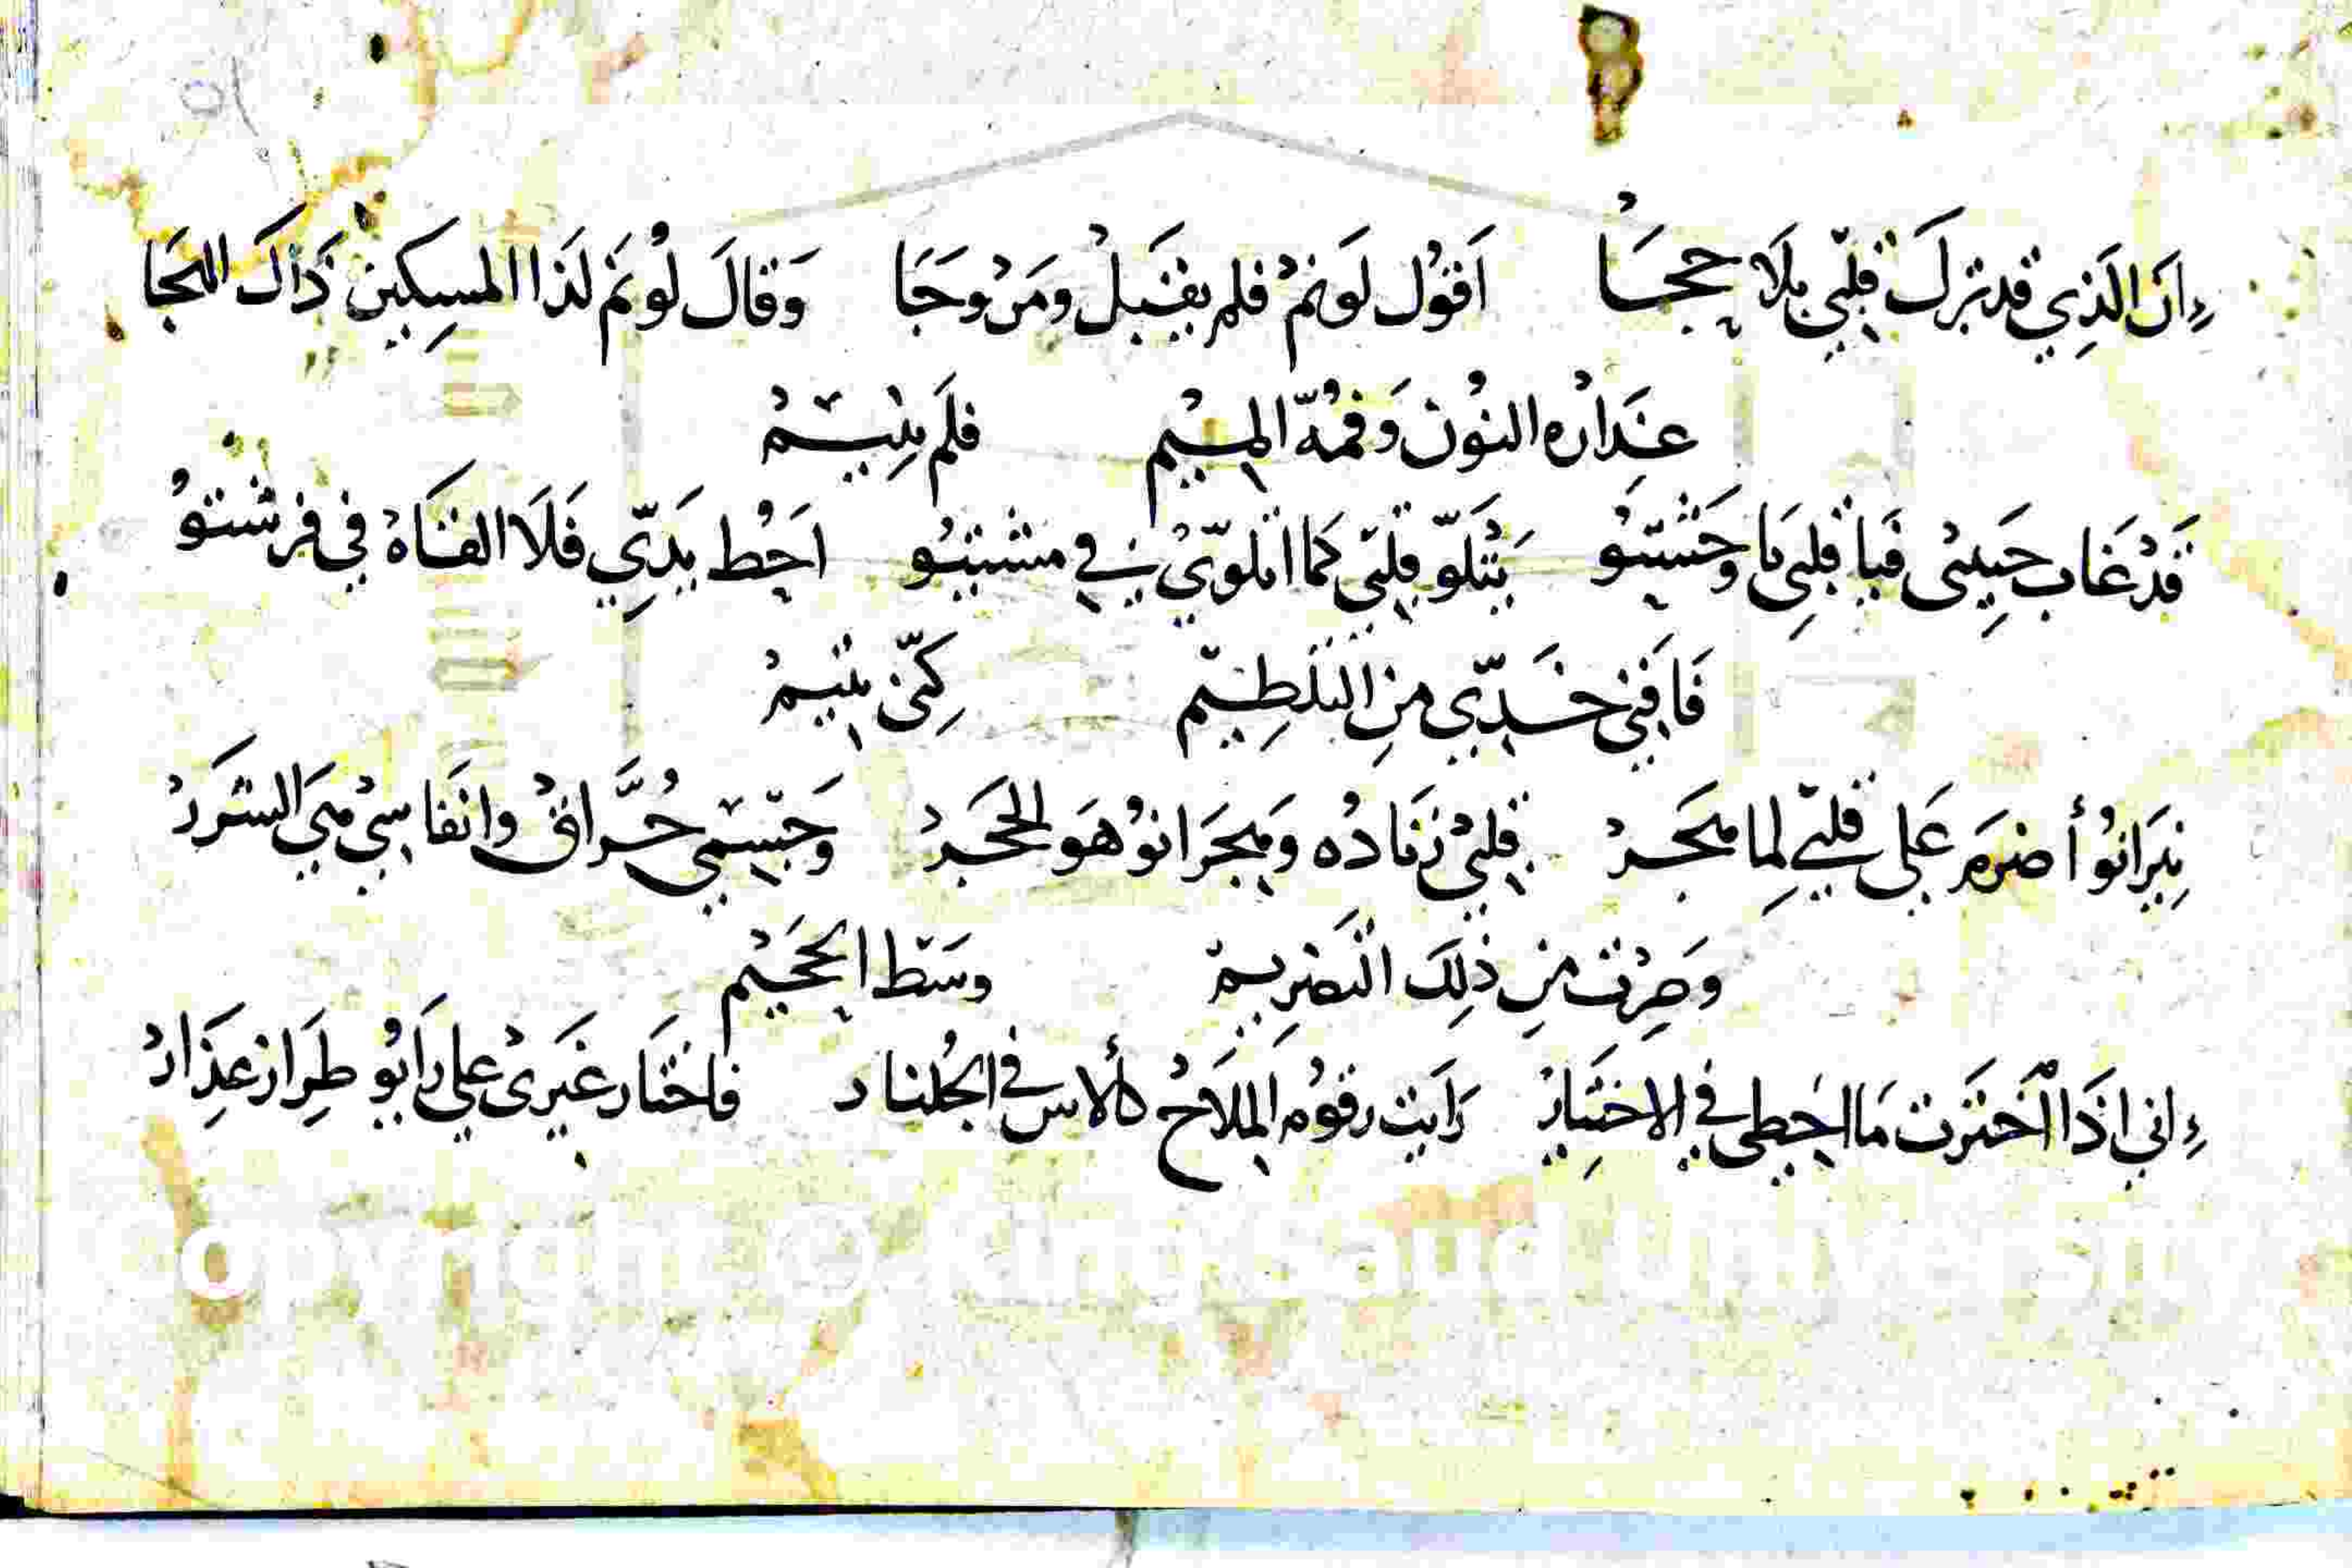 إن الذي قد ترك قلبي بلا حجا أقول لو نم فلم يقبل ومر وجا وقال لو نم لذا المسكين ذاك النجا
عذاره النون وفمه الميم فلم ينم
قد غاب حبيبي فيا قلبي ما وحشتو يتلو قلبي كما اتلوي في مشيتو احط يدي فلا القاه في فرشتو
فافني خدي من التلطيم كني يتيم
نيرانو أضرم على قلبي لما هجر قلبي زناده وهجرانو هو الحجر وجسمي حراق وانفاسي هي الشرر
وصرت من ذلك التضريم وسط الجحيم
إني اذا اخترت ما احطي في الاختيار رايت رقوم الملاح كالاس في الجلنار فاختار غيري على رايو طراز عذار
Copyright © King Saud University